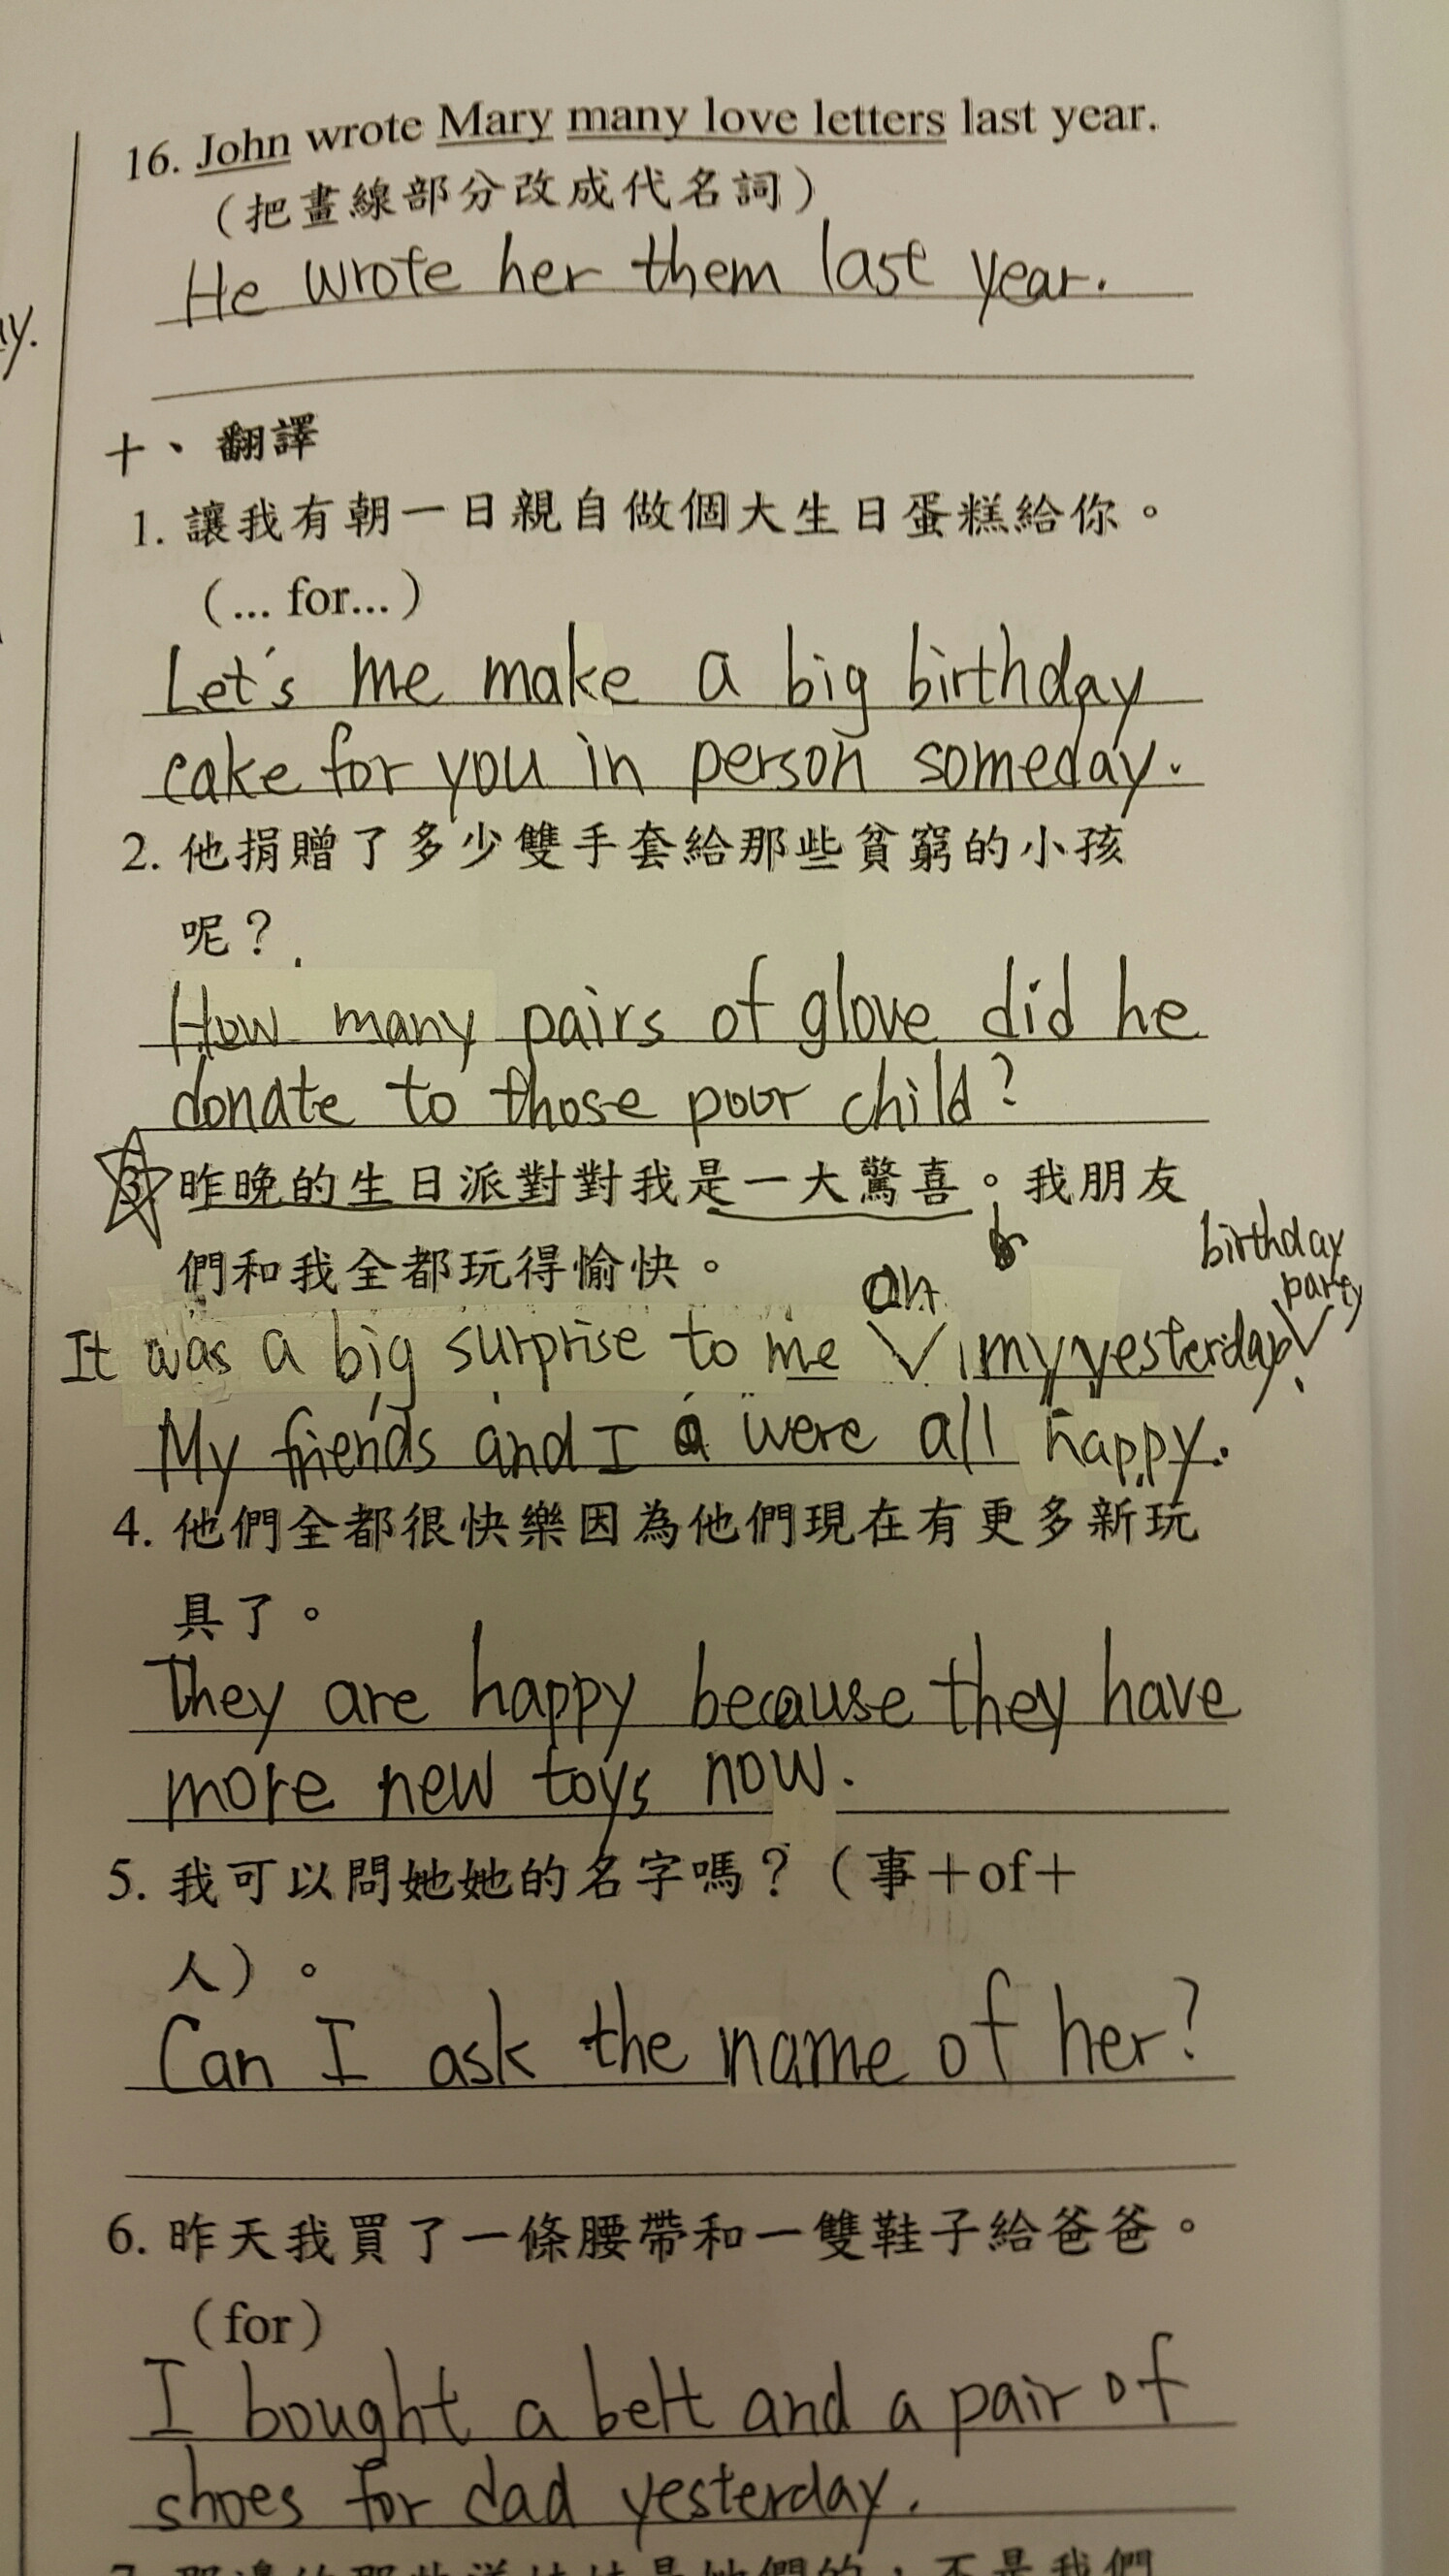 16. John wrote Mary many love letters last year.
（把畫線部分改成代名詞）
He wrote her them last year.
ay.
十、翻譯
1. 讓我有朝一日親自做個大生日蛋糕給你。
（... for...）
Let's me make a big birthday
cake for you in person someday.
2. 他捐贈了多少雙手套給那些貧窮的小孩
呢？
How many pairs of glove did he
donate to those poor child?
3. 昨晚的生日派對對我是一大驚喜。我朋友
們和我全都玩得愉快。
birthday
party
on
It was a big surprise to me my yesterday.
My friends and I were all happy.
4. 他們全都很快樂因為他們現在有更多新玩
具了。
They are happy because they have
more new toys now.
5. 我可以問她她的名字嗎？（事＋of＋
人）。
Can I ask the name of her?
6. 昨天我買了一條腰帶和一雙鞋子給爸爸。
（for）
I bought a belt and a pair of
shoes for dad yesterday.